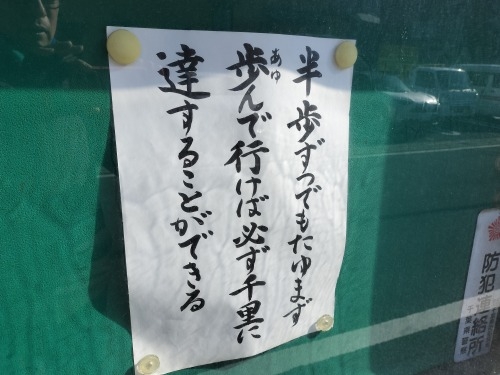 半歩ずつでもたゆまず
歩んで行けば必ず千里に
あゆ
達することができる
防犯連絡所